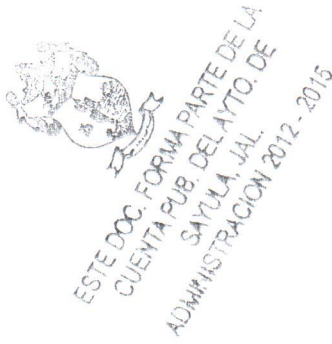 ESTE DOC. FORMA PARTE DE LA
CUENTA PUB. DEL AYTO. DE
SAYULA, JAL.
ADMINISTRACION 2012 - 2015